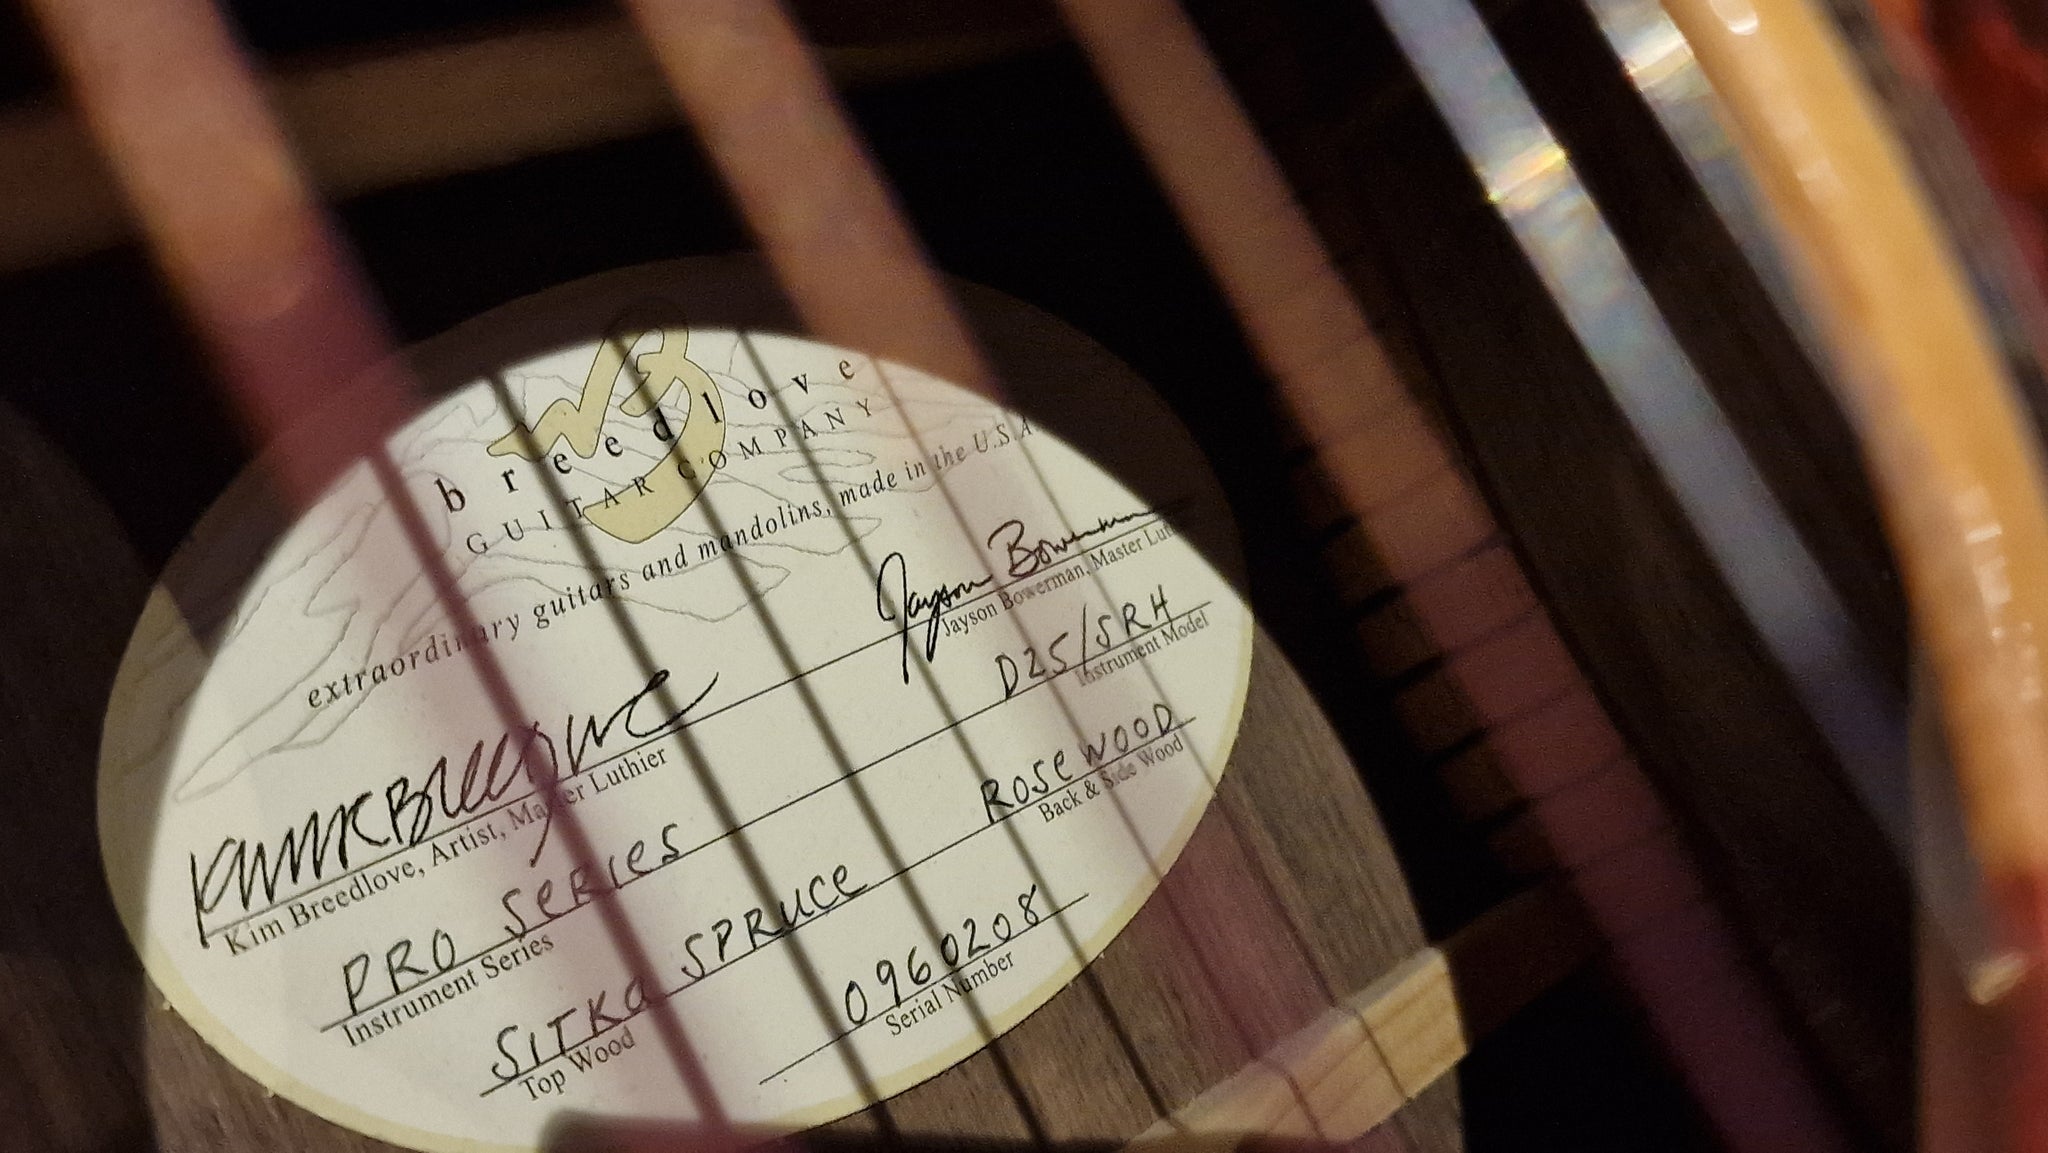 breedlove
GUITAR COMPANY
extraordinary guitars and mandolins, made in the U.S.A
Kim Breedlove
Jayson Bowerman
Kim Breedlove, Artist, Master Luthier
Jayson Bowerman, Master Lut
PRO SeRIes
D25/SRH
Instrument Series
Instrument Model
SITKa SPRUCe
ROSeWOOD
Top Wood
Back & Side Wood
0960208
Serial Number